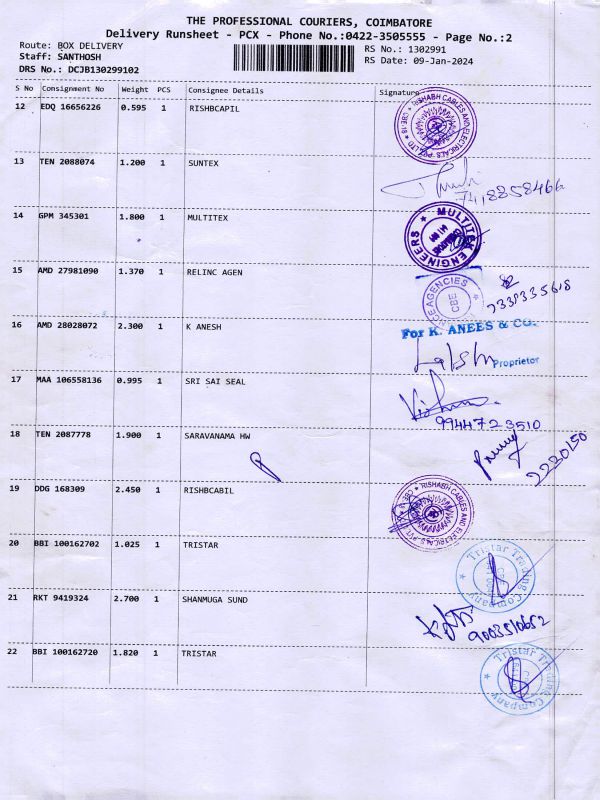 THE PROFESSIONAL COURIERS, COIMBATORE
Delivery Runsheet - PCX - Phone No.:0422-3505555 - Page No.:2
Route: BOX DELIVERY RS No.: 1302991
Staff: SANTHOSH RS Date: 09-Jan-2024
DRS No.: DCJB130299102
S No Consignment No Weight PCS Consignee Details Signature
12 EDQ 16656226 0.595 1 RISHBCAPIL
RISHABH CABLES AND ELECTRICALS PVT LTD * CBE-18 *
13 TEN 2088074 1.200 1 SUNTEX
7418858466
14 GPM 345301 1.800 1 MULTITEX
MULTITEK ENGINEERS
15 AMD 27981090 1.370 1 RELINC AGEN
AGENCIES
CBE
16 AMD 28028072 2.300 1 K ANESH
For K. ANEES & CO.
Proprietor
17 MAA 106558136 0.995 1 SRI SAI SEAL
9944723510
18 TEN 2087778 1.900 1 SARAVANAMA HW
2230150
19 DDG 168309 2.450 1 RISHBCABIL
RISHABH CABLES AND ELECTRICALS PVT LTD * CBE-18 *
20 BBI 100162702 1.025 1 TRISTAR
Tristar Trading Company
21 RKT 9419324 2.700 1 SHANMUGA SUND
9003510652
22 BBI 100162720 1.820 1 TRISTAR
Tristar Trading Company